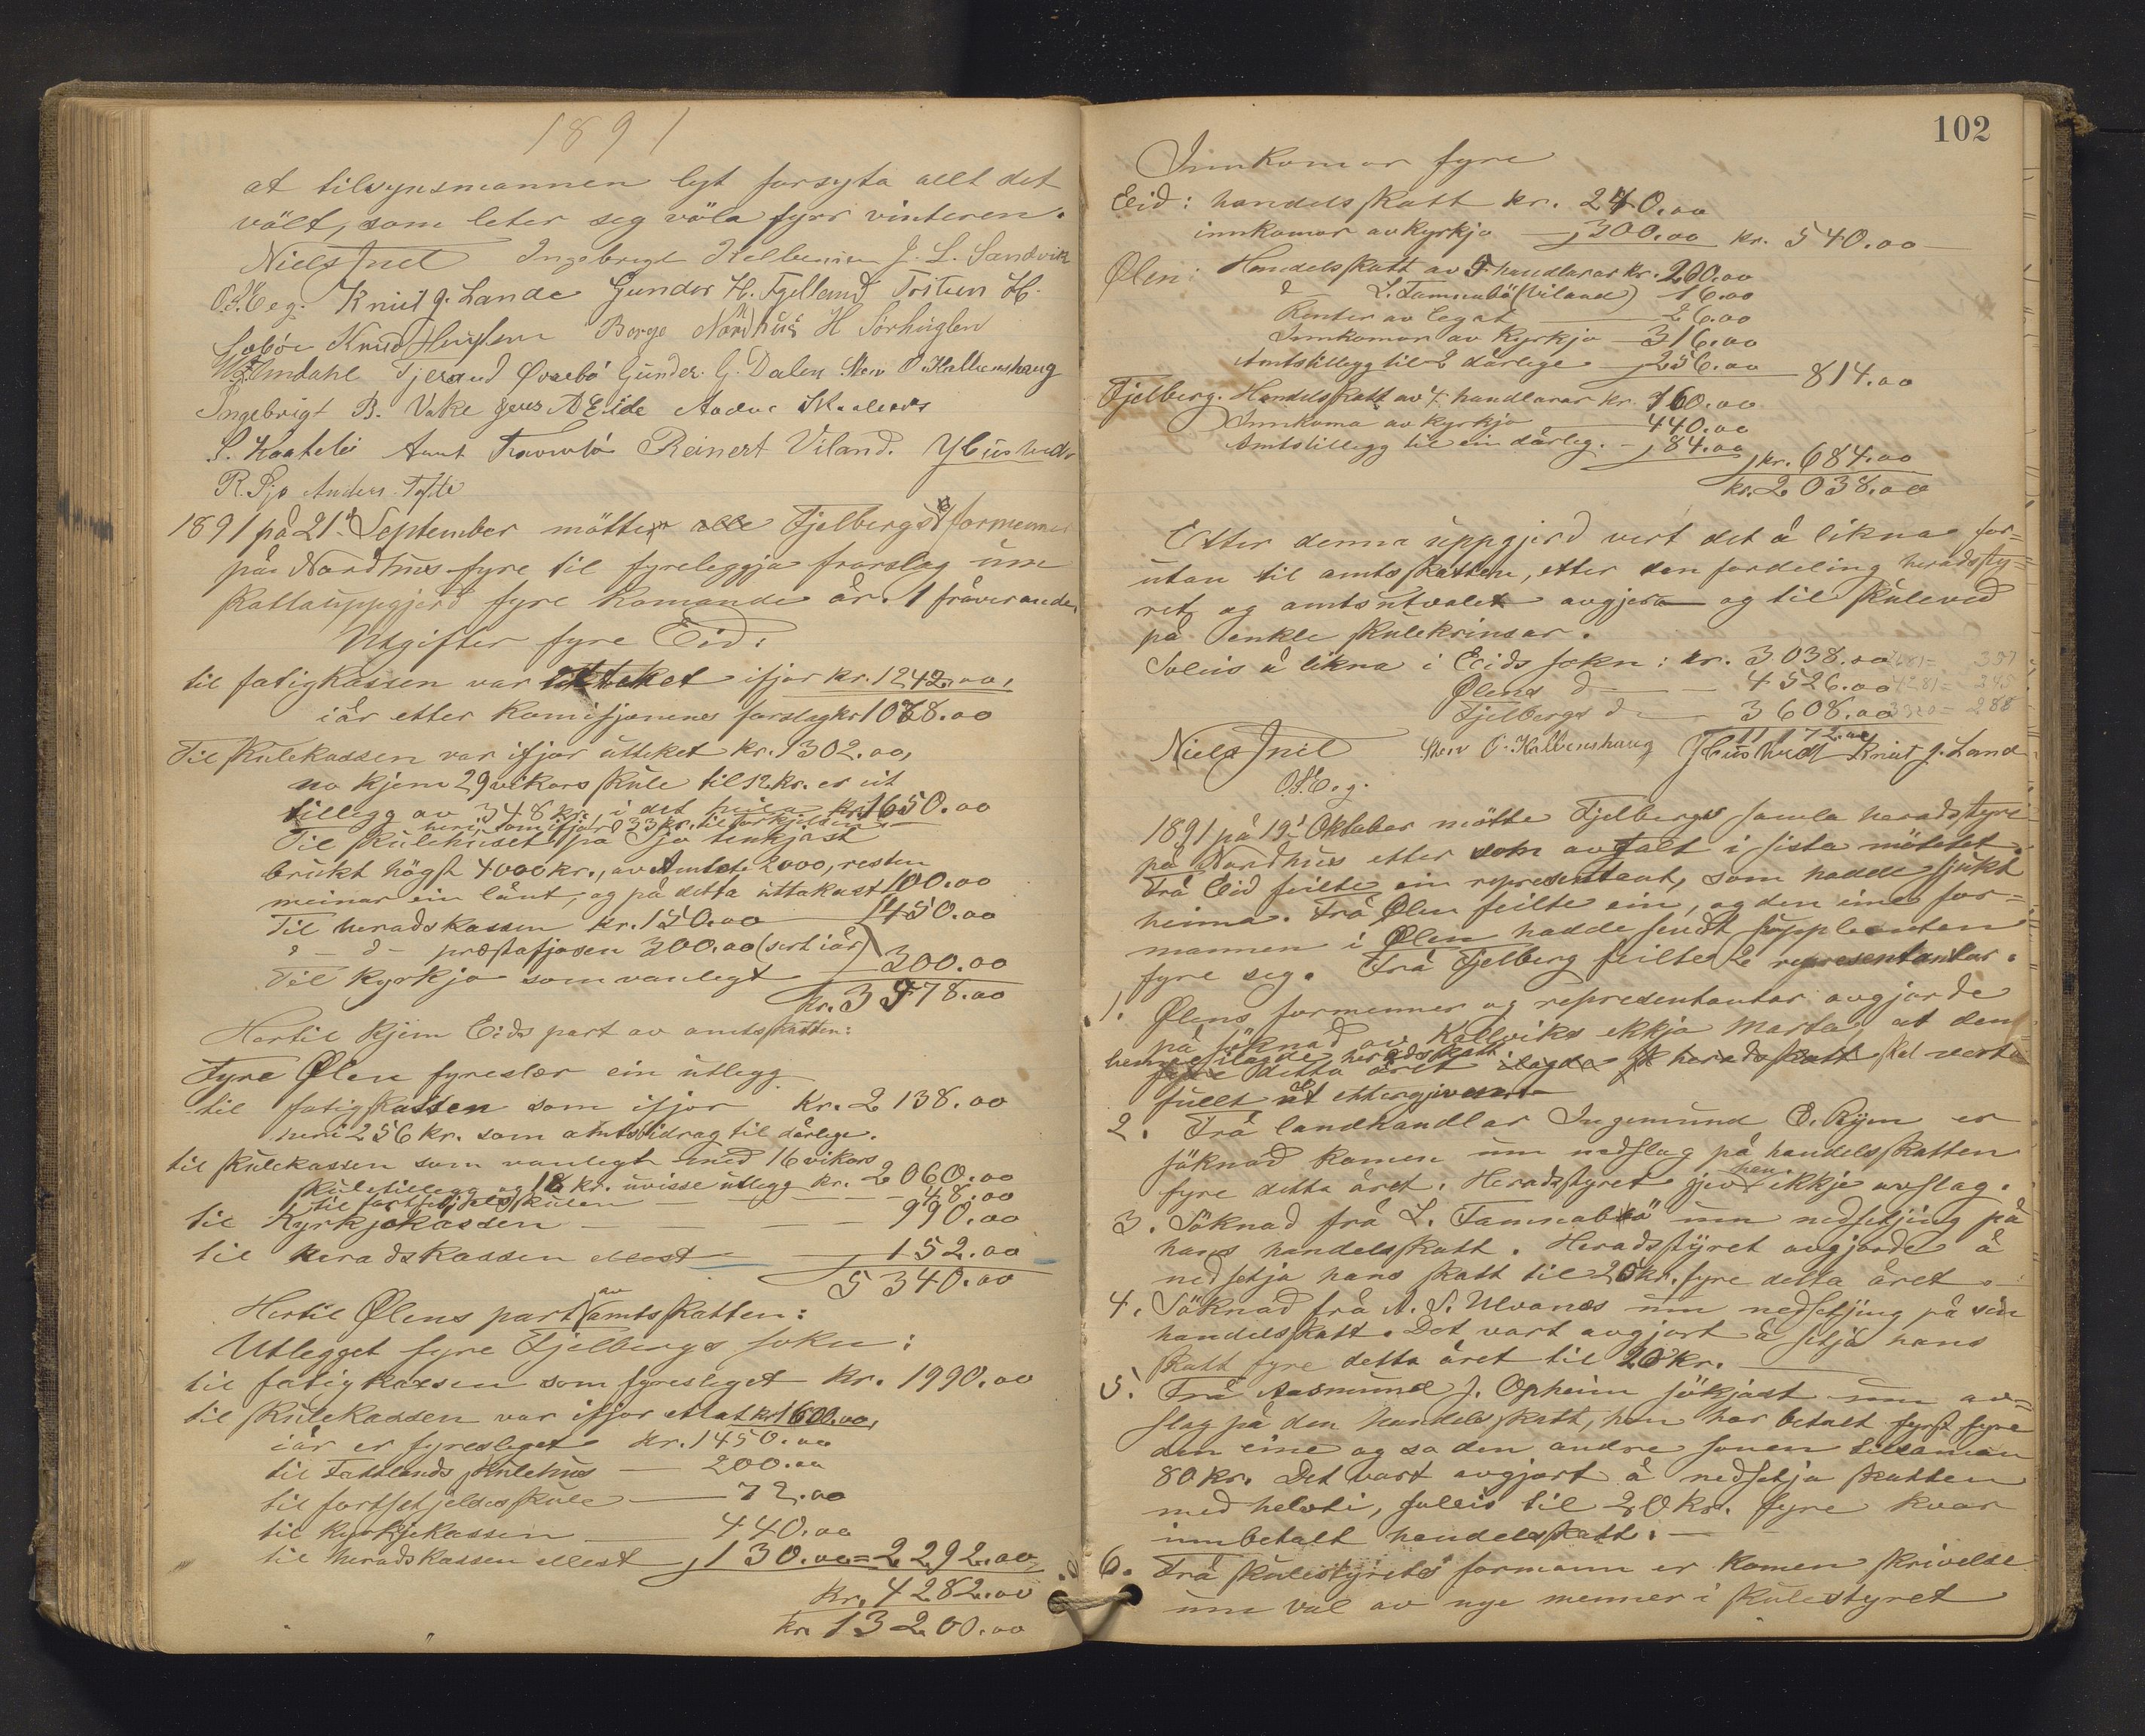 1891
at tilsynsmannen lyt forsyta allt det
vält, som leter seg völa fyrr vinteren.
Niels Jnel Ingebrigt J. L. Sandvik
O. S. Eeg. Knut J. Lande Gunder H. Fjelland Tosten H.
Knud Huglen Børge Nordhus H Sørhuglen
Tjerand Øvrebö Gunder. G. Dalen Sten O. Kallenshaug
Ingebrigt B. Vake Jens A Eide
S. Reinert Viland.
R. Sjo Anders Tofte
1891 på 21. September mötte alle Fjelbergs formenner
på Nordhus fyre til fyreleggja framslag um
skattauppgjerd fyre komande år. 1 fråverande.
Utgifter fyre Eid:
til fatigkassen var utteket ifjor kr. 1242.00,
iår etter komisjonenes forslag kr 1028.00
Til skulekassen var ifjor utteket kr. 1302.00,
no kjem 29 vikors skule til 12 kr. er eit
tillegg av 348 kr. i det heila kr. 1650.00
heri som ifjor 33 kr. til
Til skulehuset på Sjo tenkjast
brukt högst 4000 kr., av Amtet 2000, resten
meinar ein lånt, og på detta uttakast 100.00
Til heradskassen kr. 150.00 450.00
" - d - præstafjosen 300.00 (sert iår)
Til kyrkja som vanlegt 300.00
kr. 3578.00
Hertil kjem Eids part av amtsskatten:
Fyre Ølen fyreslær ein utlegg
til fatigkassen som ifjor kr. 2138.00
heri 256 kr. som amtsbidrag til dårlege.
til skulekassen som vanlegt med 16 vikors
skuletillegg og 18 kr. uvisse utlegg kr. 2060.00
til fortsetjelsskulen - - - 48.00
til Kyrkjekassen - - - 990.00
til heradskassen 152.00
5340.00
Hertil Ølens part av amtsskatten:
Utlegget fyre Fjelbergs sokn:
til fatigkassen som fyresleget kr. 1990.00
til skulekassen var ifjor kr. 1600.00,
iår er fyresleget kr. 1450.00
til skulehus 200.00
til fortsetjelsskule 72.00
til kyrkjekassen 440.00
til heradskassen 130.00 = 2292.00
kr. 4282.00
kr. 13200.00
102
Innkomor fyre
Eid: handelsskatt kr. 240.00
innkomor av kyrkja 300.00 kr. 540.00
Ølen: Handelsskatt av 5 handlarar kr. 200.00
d L. Tamnabö (Viland) 16.00
Renter av legat 26.00
Innkomor av kyrkja 316.00
Amtstillegg til 2 dårlege 256.00 814.00
Fjelberg. Handelsskatt av 4 handlarar kr. 160.00
Innkoma av kyrkja 440.00
Amtstillegg til ein dårleg. - 84.00
kr. 684.00
kr. 2038.00
Etter denna uppgjerd vert det å likna for=
utan til amtsskatten, etter den fordeling heradsty=
ret og amtsutvalet avgjera og til skuleved
på enkle skulekrinsar.
Soleis å likna i Eids sokn: kr. 3038.00
Ølens d 4526.00
Fjelbergs d 3608.00
11172.00
Niels Jnel Sten O. Kallenshaug Knut J. Lande
O. S. Eeg.
1891 på 12. Oktober mötte Fjelbergs samla heradstyre
på Nordhus etter som avtalt i sista mötetet.
Frå Eid feilte ein representant, som hadde sjukt
heima. Frå Ølen feilte ein, og den eine for=
mannen i Ølen hadde sendt suppleanten
fyre seg. Frå Fjelberg feilte 2 representantar.
1. Ølens formenner og representantar avgjorde
på söknad av Kallviks ekkja Marta, at den
henne ilagde heradskatt
fyre detta året ilagde heradsskatt skal verta
fullt ut ettergjeven.
2. Frå landhandlar Ingemund E. Rym er
söknad komen um nedslag på handelsskatten
fyre detta året. Heradstyret gjev han ikkje avslag.
3. Söknad frå L. Tamnabö um nedsetjing på
hans handelsskatt. Heradstyret avgjorde å
nedsetja hans skatt til 25 kr. fyre detta året.
4. Söknad frå A. S. Ulvanes um nedsetjing på sin
handelsskatt. Det vart avgjort å setja hans
skatt fyre detta året til 20 kr.
5. Frå Aasmund J. Opheim sökjast um av=
slag på den handelsskatt, han har betalt fyrst fyre
den eine og so den andre sonen tilsaman
80 kr. Det vart avgjort å nedsetja skatten
med helvti, soleis til 20 kr. fyre kvar
innbetalt handelsskatt.
6. Frå skulestyrets formann er komen skrivelse
um val av nye menner i skulestyret